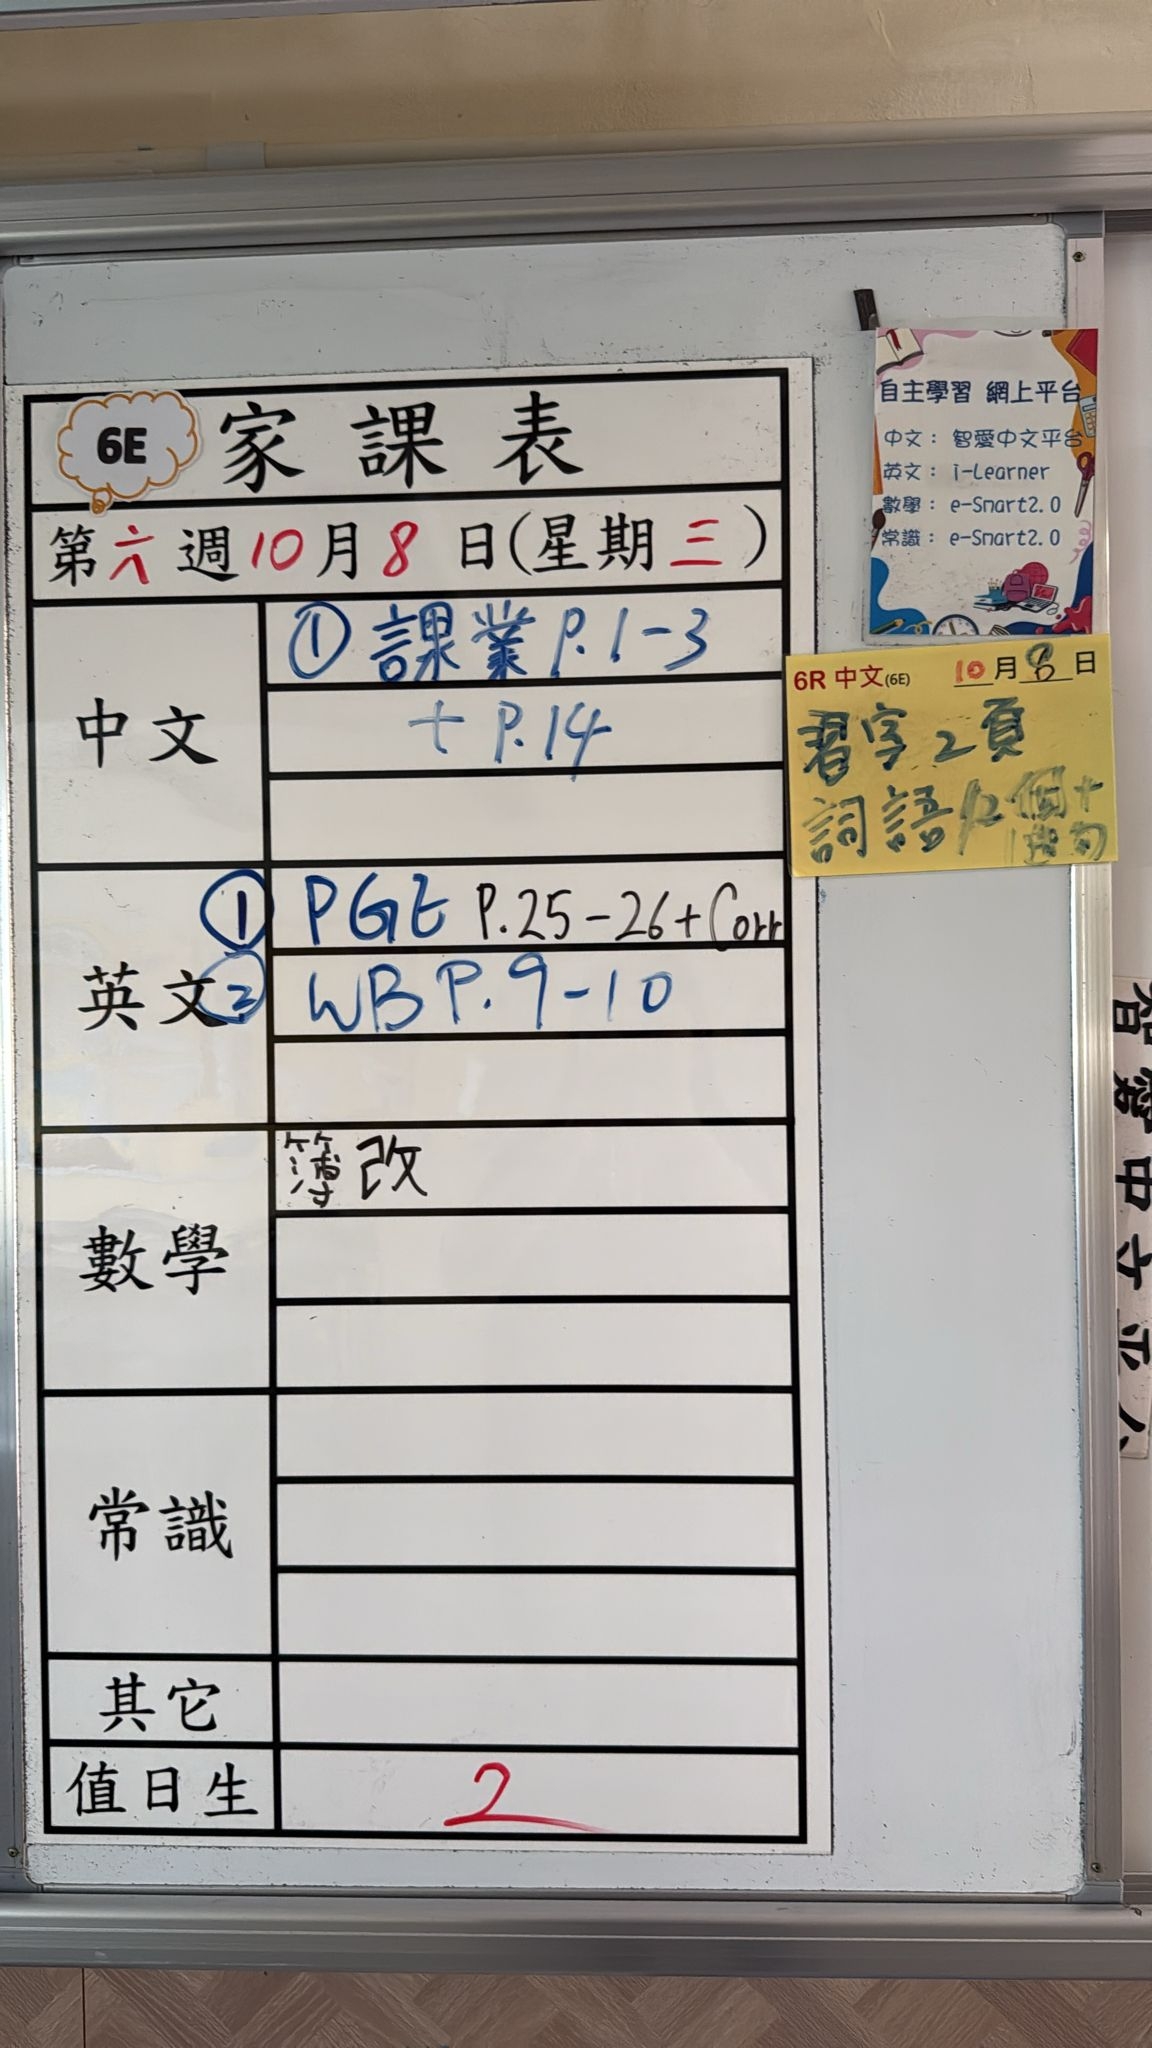 6E 家課表
第六週10月8日(星期三)
中文
① 課業 P.1-3
+ P.14
英文
① PGE P.25-26+Corr
② WB P.9-10
數學
簿改
常識
其它
值日生
2
自主學習 網上平台
中文： 智愛中文平台
英文： i-Learner
數學： e-Smart2.0
常識： e-Smart2.0
6R 中文(6E) 10月8日
習字2頁
詞語12個+
智愛中文平台